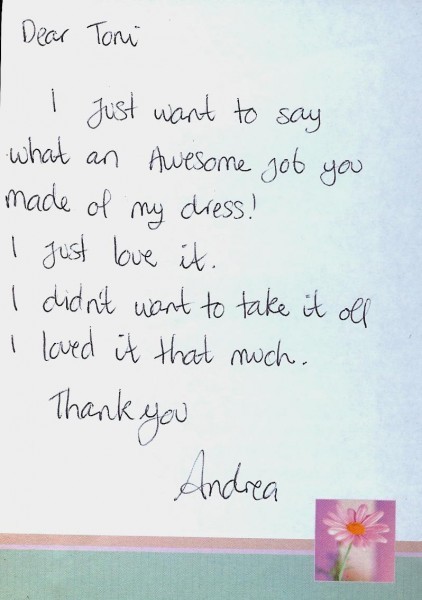 Dear Toni
I Just want to say
what an Awesome job you
made of my dress!
I Just love it.
I didn't want to take it off
I loved it that much.
Thank you
Andrea